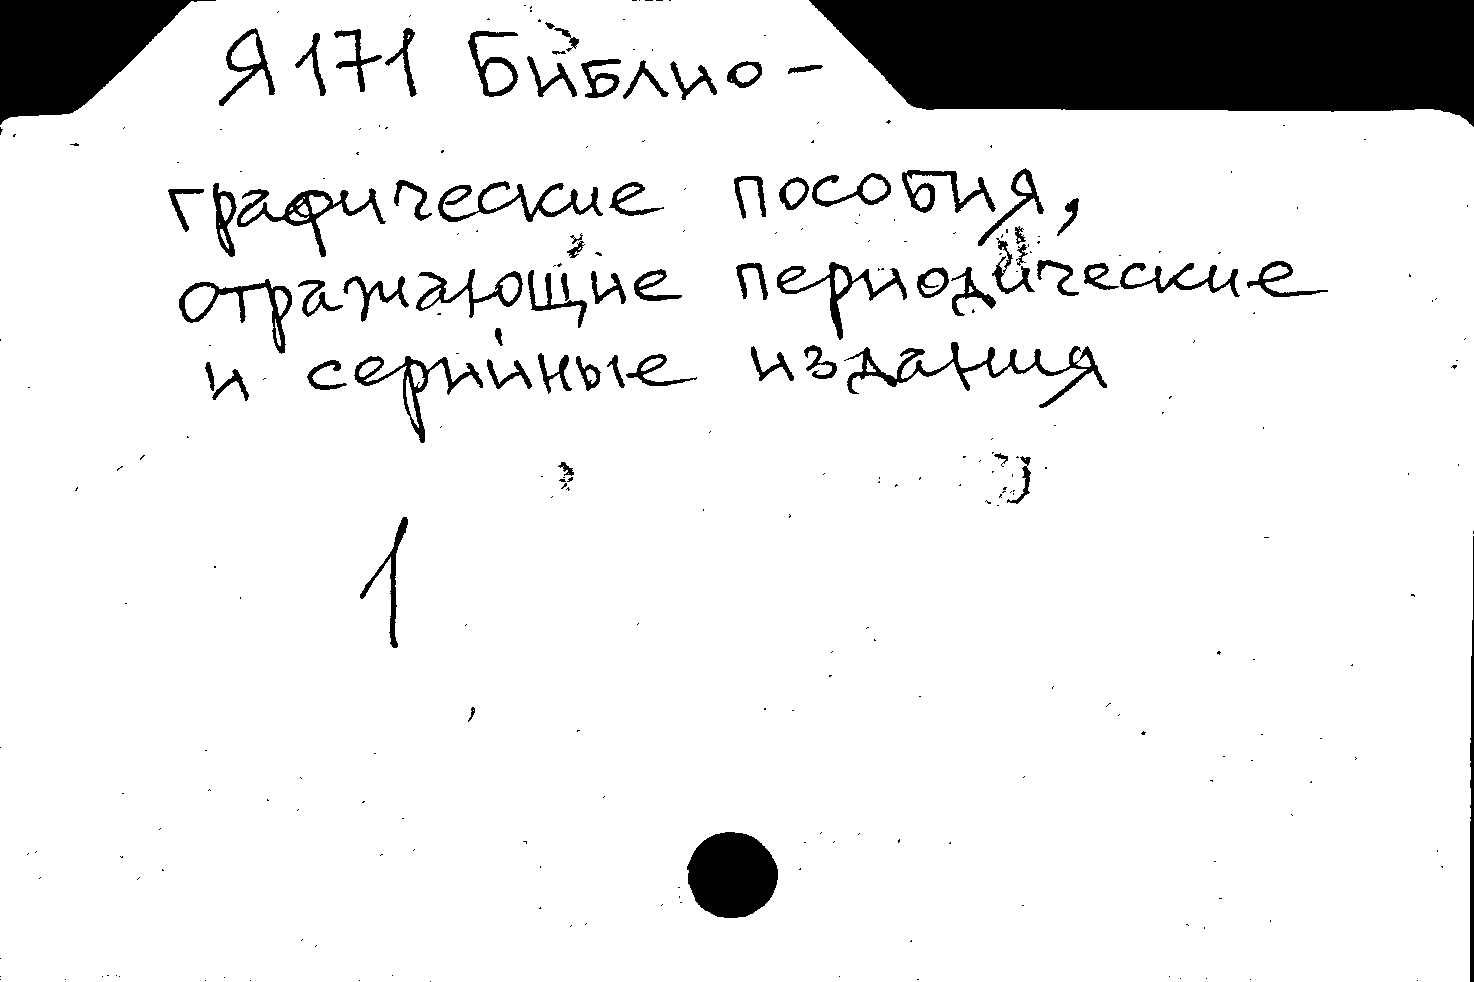 Я171 Библио-
графические пособия,
отражающие периодические
и серийные издания
1